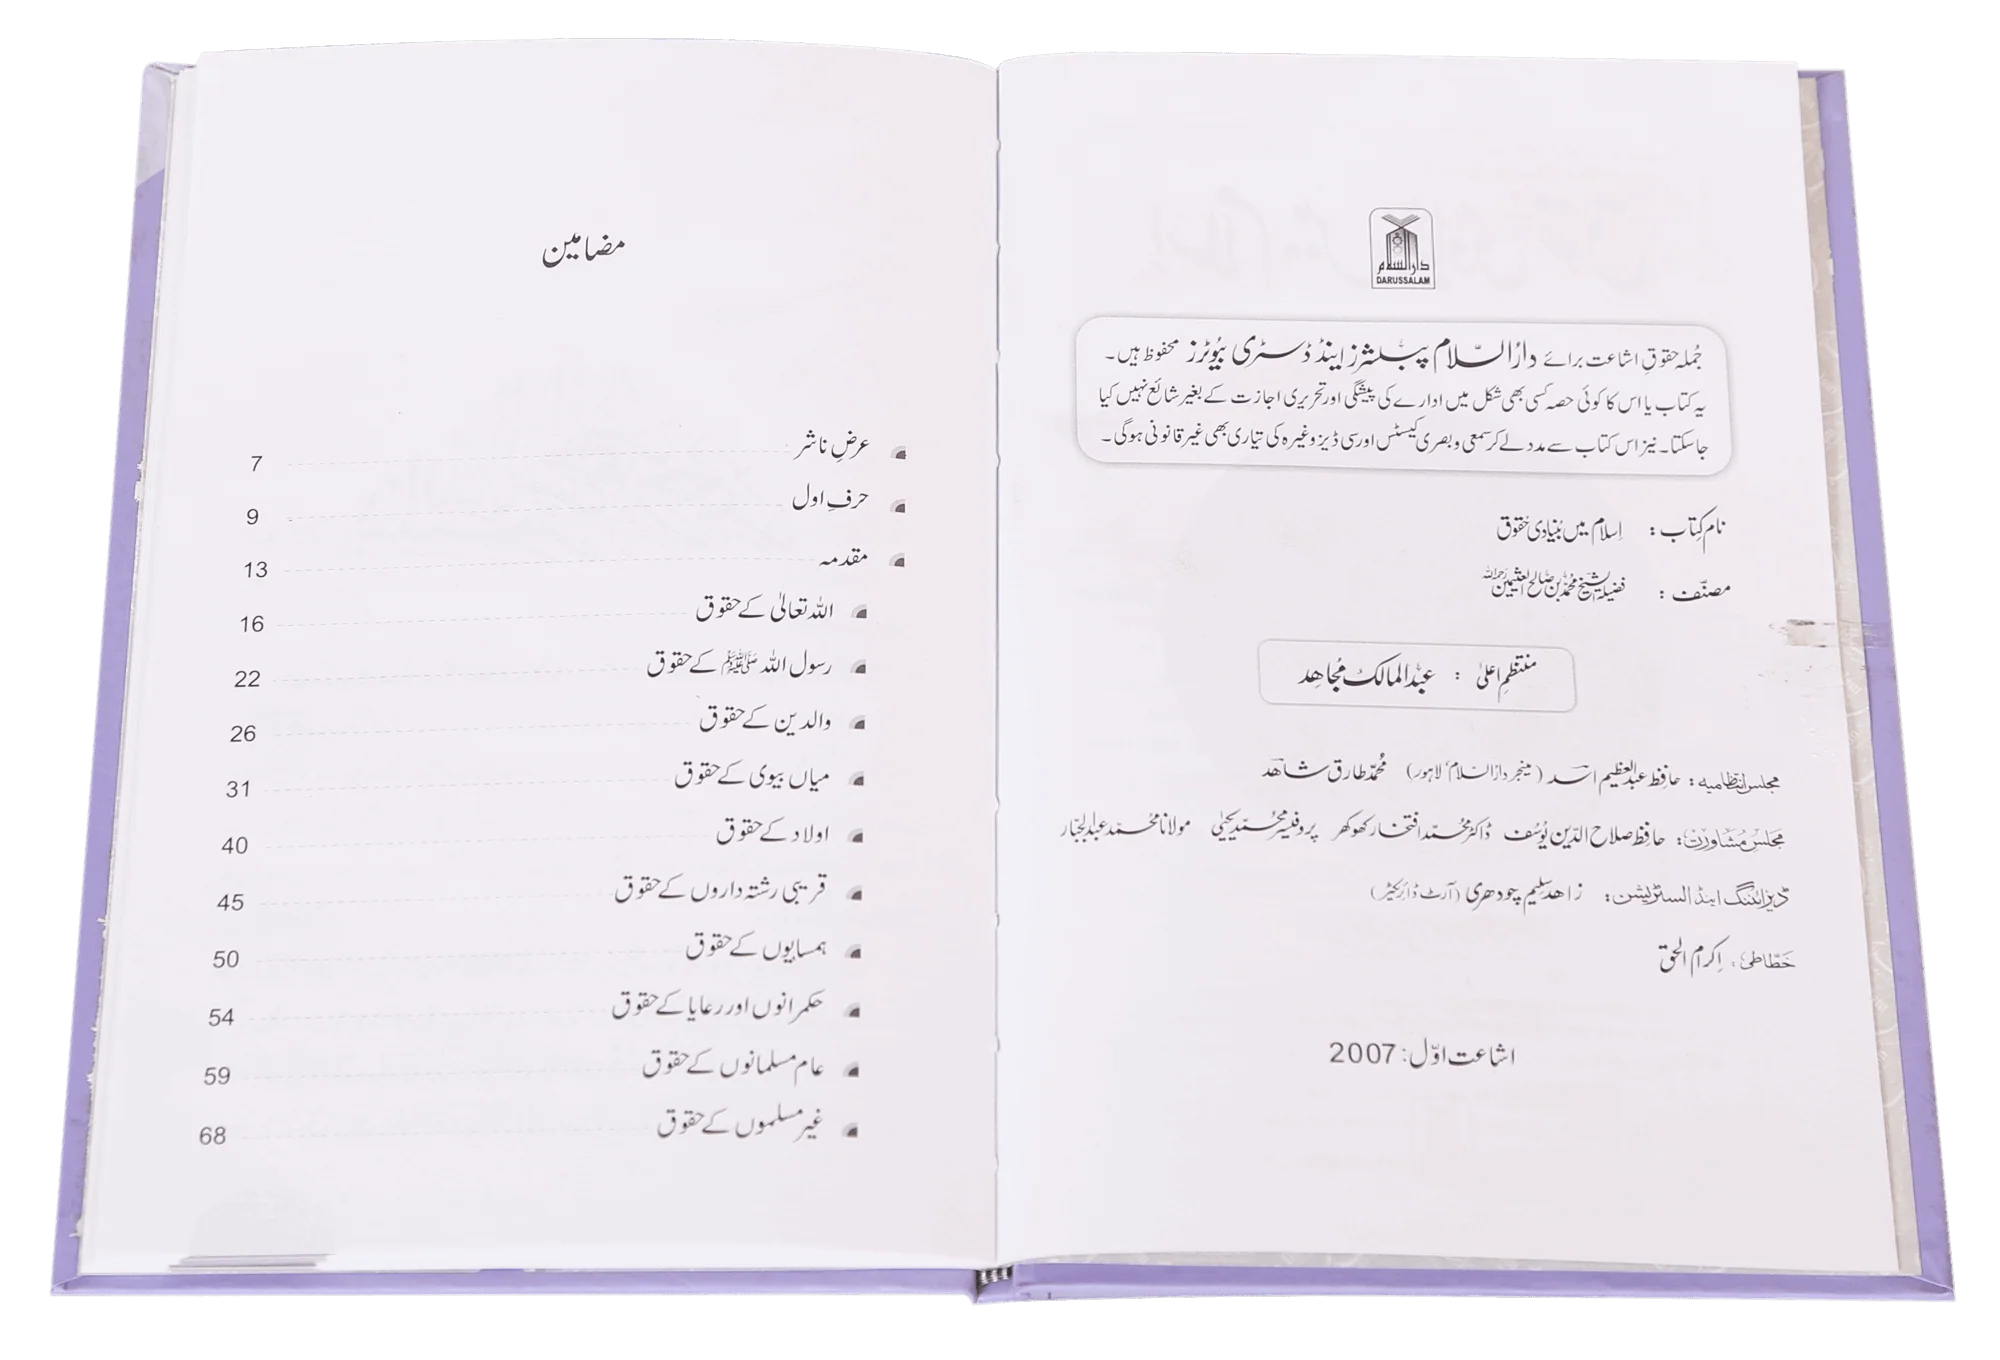 دارالسلام
DARUSSALAM
جُملہ حقوقِ اشاعت برائے دارُالسّلام پبلشرز اینڈ ڈسٹری بیُوٹرز محفوظ ہیں۔
یہ کتاب یا اس کا کوئی حصہ کسی بھی شکل میں ادارے کی پیشگی اور تحریری اجازت کے بغیر شائع نہیں کیا
جاسکتا۔ نیز اس کتاب سے مدد لے کر سمعی و بصری کیسٹس اور سی ڈیز وغیرہ کی تیاری بھی غیر قانونی ہوگی۔
نام کِتاب : اِسلام میں بُنیادی حُقوق
مصنّف : فضیلۃ الشیخ محمد بن صالح العثیمین رحمہ اللہ
منتظمِ اعلیٰ : عبدُالمالک مُجاھِد
مجلس انتظامیہ : حافظ عبدالعظیم اسد (مینجر دارُالسلام، لاہور) محُمّد طارق شاھد
مجلس مُشاورت : حافظ صلاح الدّین یُوسُف ڈاکٹر محُمّد افتخار کھوکھر پروفیسر محُمّد یحییٰ مولانا محُمّد عبدالجبّار
ڈیزائننگ اینڈ السٹریشن : زاھد سلیم چودھری (آرٹ ڈائریکٹر)
خطّاطی : اِکرام الحق
اشاعت اوّل : 2007
مضامین
عرضِ ناشر 7
حرفِ اول 9
مقدمہ 13
اللہ تعالیٰ کے حقوق 16
رسول اللہ ﷺ کے حقوق 22
والدین کے حقوق 26
میاں بیوی کے حقوق 31
اولاد کے حقوق 40
قریبی رشتہ داروں کے حقوق 45
ہمسایوں کے حقوق 50
حکمرانوں اور رعایا کے حقوق 54
عام مسلمانوں کے حقوق 59
غیر مسلموں کے حقوق 68